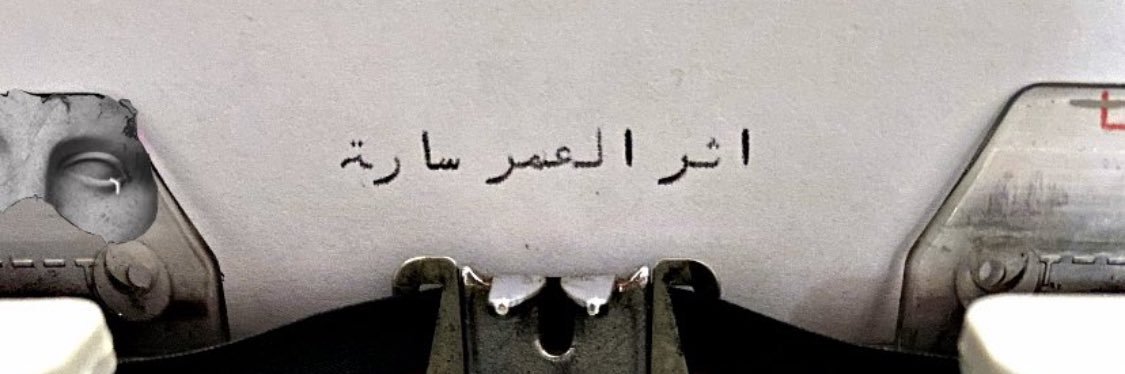 اثر العمر سارة